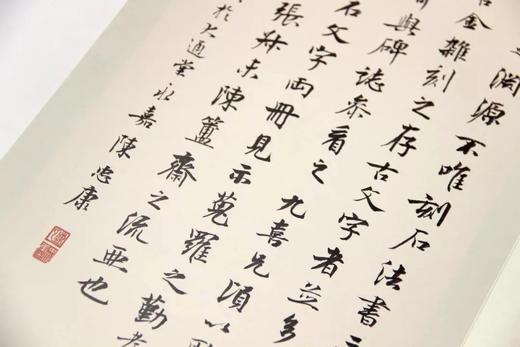 淵源不唯刻石法書
金雜刻之存古文字者並多
與碑誌參看之九喜兄須以
石文字兩冊見示蒐羅之勤
張叔未陳簠齋之流亞也
於大通堂永嘉陳忠康